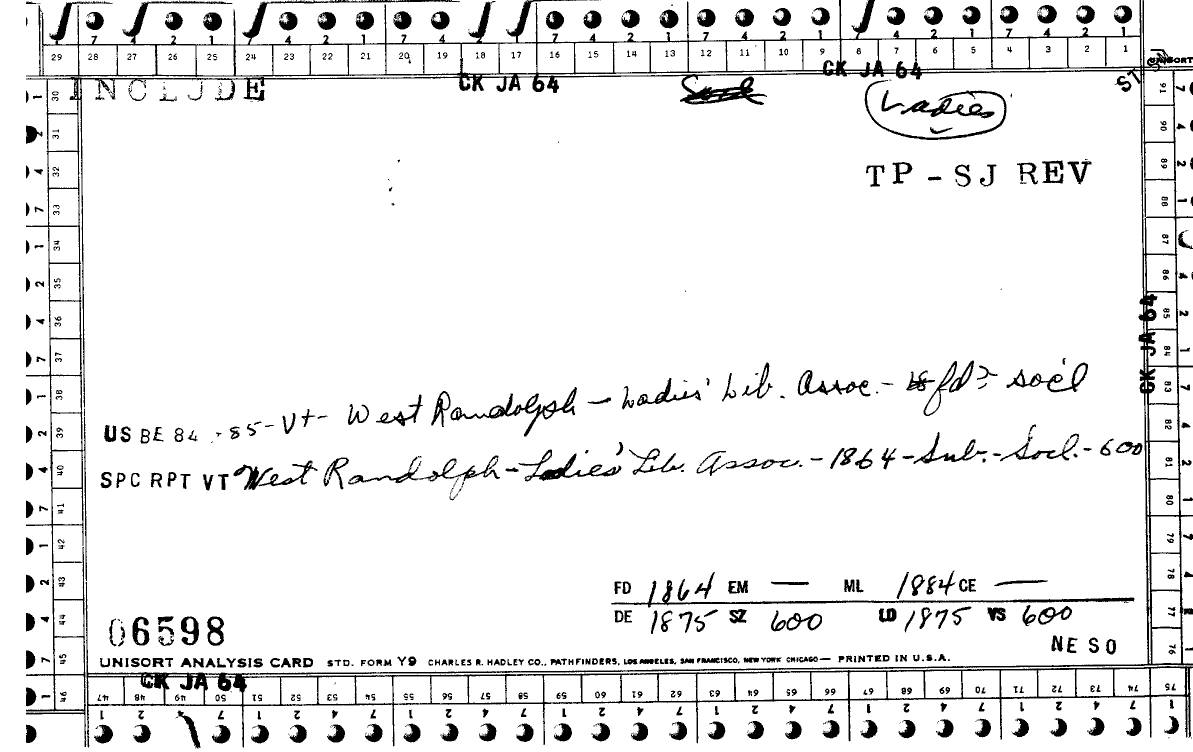 7 4 2 1 7 4 2 1 7 4 2 1 7 4 2 1 7 4 2 1 7 4 2 1 7 4 2 1
29 28 27 26 25 24 23 22 21 20 19 18 17 16 15 14 13 12 11 10 9 8 7 6 5 4 3 2 1
UNISORT
INCLUDE CK JA 64 CK JA 64 ST
Ladies
TP - SJ REV
CK JA 64
US BE 84 - 85 - Vt - West Randolph - Ladies' Lib. Assoc. - fd? soc'l
SPC RPT VT West Randolph - Ladies' Lib. Assoc. - 1864 - Sub. - Socl. - 600
FD 1864 EM — ML 1884 CE —
DE 1875 SZ 600 LD 1875 VS 600
06598
NE SO
UNISORT ANALYSIS CARD STD. FORM Y9 CHARLES R. HADLEY CO., PATHFINDERS, LOS ANGELES, SAN FRANCISCO, NEW YORK CHICAGO — PRINTED IN U.S.A.
CK JA 64
30 31 32 33 34 35 36 37 38 39 40 41 42 43 44 45 46
47 48 49 50 51 52 53 54 55 56 57 58 59 60 61 62 63 64 65 66 67 68 69 70 71 72 73 74 75
91 90 89 88 87 86 85 84 83 82 81 80 79 78 77 76